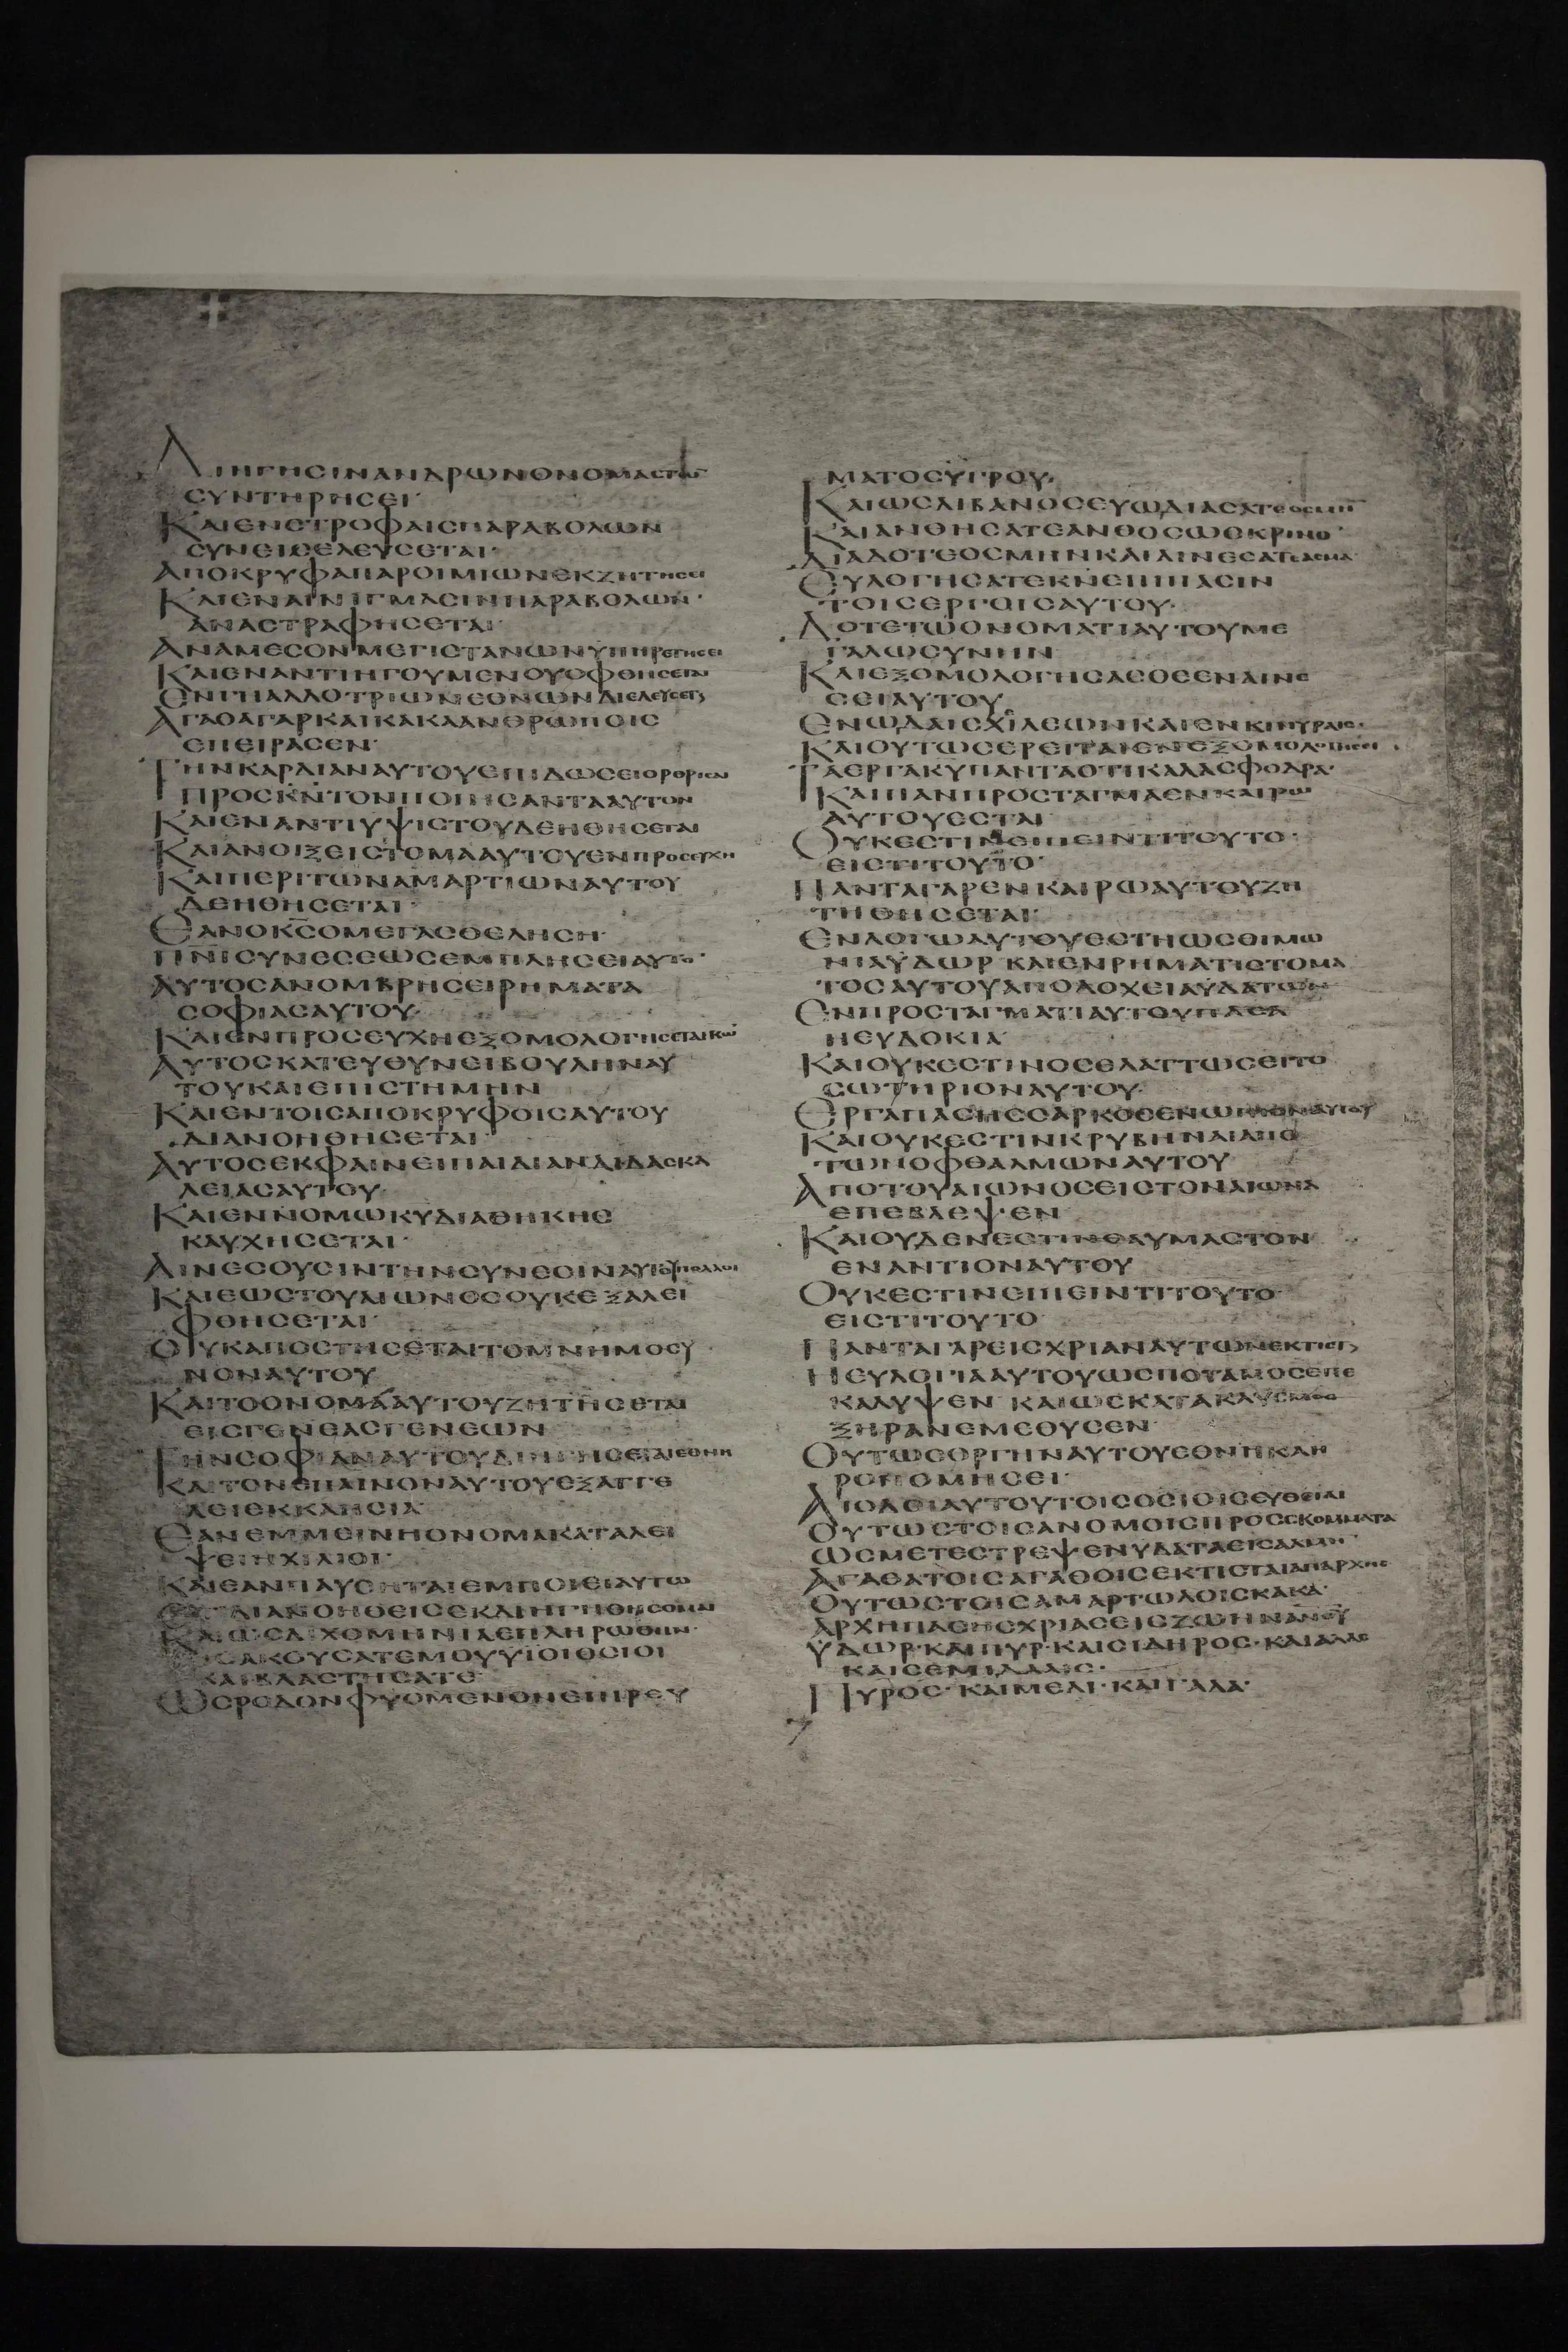 ΔΙΗΓΗΣΙΝΑΝΔΡΩΝΟΝΟΜΑΣΤΩ
ΣΥΝΤΗΡΗΣΕΙ·
ΚΑΙΕΝΣΤΡΟΦΑΙΣΠΑΡΑΒΟΛΩΝ
ΣΥΝΕΙΣΕΛΕΥΣΕΤΑΙ·
ΑΠΟΚΡΥΦΑΠΑΡΟΙΜΙΩΝΕΚΖΗΤΗΣΕΙ
ΚΑΙΕΝΑΙΝΙΓΜΑΣΙΝΠΑΡΑΒΟΛΩΝ·
ΑΝΑΣΤΡΑΦΗΣΕΤΑΙ·
ΑΝΑΜΕΣΟΝΜΕΓΙΣΤΑΝΩΝΥΠΗΡΕΤΗΣΕΙ
ΚΑΙΕΝΑΝΤΙΗΓΟΥΜΕΝΟΥΟΦΘΗΣΕΤΑΙ
ΕΝΓΗΑΛΛΟΤΡΙΩΝΕΘΝΩΝΔΙΕΛΕΥΣΕΤ
ΑΓΑΘΑΓΑΡΚΑΙΚΑΚΑΑΝΘΡΩΠΟΙΣ
ΕΠΕΙΡΑΣΕΝ·
ΤΗΝΚΑΡΔΙΑΝΑΥΤΟΥΕΠΙΔΩΣΕΙΟΡΘΡΙΣΑΙ
ΠΡΟΣΚΝΤΟΝΠΟΙΗΣΑΝΤΑΑΥΤΟΝ
ΚΑΙΕΝΑΝΤΙΥΨΙΣΤΟΥΔΕΗΘΗΣΕΤΑΙ
ΚΑΙΑΝΟΙΞΕΙΣΤΟΜΑΑΥΤΟΥΕΝΠΡΟΣΕΥΧΗ
ΚΑΙΠΕΡΙΤΩΝΑΜΑΡΤΙΩΝΑΥΤΟΥ
ΔΕΗΘΗΣΕΤΑΙ·
ΕΑΝΟΚΣΟΜΕΓΑΣΘΕΛΗΣΗ·
ΠΝΙΣΥΝΕΣΕΩΣΕΜΠΛΗΣΕΙΑΥΤΟ·
ΑΥΤΟΣΑΝΟΜΒΡΗΣΕΙΡΗΜΑΤΑ
ΣΟΦΙΑΣΑΥΤΟΥ·
ΚΑΙΕΝΠΡΟΣΕΥΧΗΕΞΟΜΟΛΟΓΗΣΕΤΑΙΚΩ
ΑΥΤΟΣΚΑΤΕΥΘΥΝΕΙΒΟΥΛΗΝΑΥ
ΤΟΥΚΑΙΕΠΙΣΤΗΜΗΝ
ΚΑΙΕΝΤΟΙΣΑΠΟΚΡΥΦΟΙΣΑΥΤΟΥ
ΔΙΑΝΟΗΘΗΣΕΤΑΙ·
ΑΥΤΟΣΕΚΦΑΙΝΕΙΠΑΙΔΙΑΝΔΙΔΑΣΚΑ
ΛΕΙΑΣΑΥΤΟΥ·
ΚΑΙΕΝΝΟΜΩΚΥΔΙΑΘΗΚΗΣ
ΚΑΥΧΗΣΕΤΑΙ·
ΑΙΝΕΣΟΥΣΙΝΤΗΝΣΥΝΕΣΙΝΑΥΤΟΥΠΟΛΛΟΙ
ΚΑΙΕΩΣΤΟΥΑΙΩΝΟΣΟΥΚΕΞΑΛΕΙ
ΦΘΗΣΕΤΑΙ·
ΟΥΚΑΠΟΣΤΗΣΕΤΑΙΤΟΜΝΗΜΟΣΥ
ΝΟΝΑΥΤΟΥ
ΚΑΙΤΟΟΝΟΜΑΑΥΤΟΥΖΗΤΗΣΕΤΑΙ
ΕΙΣΓΕΝΕΑΣΓΕΝΕΩΝ
ΤΗΝΣΟΦΙΑΝΑΥΤΟΥΔΙΗΓΗΣΕΤΑΙΕΘΝΗ
ΚΑΙΤΟΝΕΠΑΙΝΟΝΑΥΤΟΥΕΞΑΓΓΕ
ΛΕΙΕΚΚΛΗΣΙΑ·
ΕΑΝΕΜΜΕΙΝΗΟΝΟΜΑΚΑΤΑΛΕΙ
ΨΕΙΗΧΙΛΙΟΙ·
ΚΑΙΕΑΝΠΑΥΣΗΤΑΙΕΜΠΟΙΕΙΑΥΤΩ
ΕΤΙΔΙΑΝΟΗΘΕΙΣΕΚΔΙΗΓΗΘΗΣΟΜΑΙ
ΚΑΙΩΣΔΙΧΟΜΗΝΙΑΕΠΛΗΡΩΘΗΝ·
ΕΙΣΑΚΟΥΣΑΤΕΜΟΥΥΙΟΙΟΣΙΟΙ
ΚΑΙΒΛΑΣΤΗΣΑΤΕ·
ΩΣΡΟΔΟΝΦΥΟΜΕΝΟΝΕΠΙΡΕΥ
ΜΑΤΟΣΥΓΡΟΥ·
ΚΑΙΩΣΛΙΒΑΝΟΣΕΥΩΔΙΑΣΑΤΕΟΣΜΗ
ΚΑΙΑΝΘΗΣΑΤΕΑΝΘΟΣΩΣΚΡΙΝΟ·
ΔΙΑΔΟΤΕΟΣΜΗΝΚΑΙΑΙΝΕΣΑΤΕΑΣΜΑ
ΕΥΛΟΓΗΣΑΤΕΚΝΕΠΙΠΑΣΙΝ
ΤΟΙΣΕΡΓΟΙΣΑΥΤΟΥ·
ΔΟΤΕΤΩΟΝΟΜΑΤΙΑΥΤΟΥΜΕ
ΓΑΛΩΣΥΝΗΝ
ΚΑΙΕΞΟΜΟΛΟΓΗΣΑΣΘΕΕΝΑΙΝΕ
ΣΕΙΑΥΤΟΥ
ΕΝΩΔΑΙΣΧΙΛΕΩΝΚΑΙΕΝΚΙΝΥΡΑΙΣ·
ΚΑΙΟΥΤΩΣΕΡΕΙΤΑΙΕΝΕΞΟΜΟΛΟΓΗΣΕΙ
ΤΑΕΡΓΑΚΥΠΑΝΤΑΟΤΙΚΑΛΑΣΦΟΔΡΑ·
ΚΑΙΠΑΝΠΡΟΣΤΑΓΜΑΕΝΚΑΙΡΩ
ΑΥΤΟΥΕΣΤΑΙ
ΟΥΚΕΣΤΙΝΕΙΠΕΙΝΤΙΤΟΥΤΟ·
ΕΙΣΤΙΤΟΥΤΟ·
ΠΑΝΤΑΓΑΡΕΝΚΑΙΡΩΑΥΤΟΥΖΗ
ΤΗΘΗΣΕΤΑΙ·
ΕΝΛΟΓΩΑΥΤΟΥΕΣΤΗΩΣΘΙΜΩ
ΝΙΑΥΔΩΡ ΚΑΙΕΝΡΗΜΑΤΙΣΤΟΜΑ
ΤΟΣΑΥΤΟΥΑΠΟΔΟΧΕΙΑΥΔΑΤΩΝ
ΕΝΠΡΟΣΤΑΓΜΑΤΙΑΥΤΟΥΠΑΣΑ
ΗΕΥΔΟΚΙΑ·
ΚΑΙΟΥΚΕΣΤΙΝΟΣΕΛΑΤΤΩΣΕΙΤΟ
ΣΩΤΗΡΙΟΝΑΥΤΟΥ·
ΕΡΓΑΠΑΣΗΣΣΑΡΚΟΣΕΝΩΠΙΟΝΑΥΤΟΥ
ΚΑΙΟΥΚΕΣΤΙΝΚΡΥΒΗΝΑΙΑΠΟ
ΤΩΝΟΦΘΑΛΜΩΝΑΥΤΟΥ
ΑΠΟΤΟΥΑΙΩΝΟΣΕΙΣΤΟΝΑΙΩΝΑ
ΕΠΕΒΛΕΨΕΝ
ΚΑΙΟΥΔΕΝΕΣΤΙΝΘΑΥΜΑΣΤΟΝ
ΕΝΑΝΤΙΟΝΑΥΤΟΥ
ΟΥΚΕΣΤΙΝΕΙΠΕΙΝΤΙΤΟΥΤΟ·
ΕΙΣΤΙΤΟΥΤΟ·
ΠΑΝΤΑΓΑΡΕΙΣΧΡΙΑΝΑΥΤΩΝΕΚΤΙΣΤ
ΗΕΥΛΟΓΙΑΑΥΤΟΥΩΣΠΟΤΑΜΟΣΕΠΕ
ΚΑΛΥΨΕΝ ΚΑΙΩΣΚΑΤΑΚΛΥΣΜΟΣ
ΞΗΡΑΝΕΜΕΘΥΣΕΝ·
ΟΥΤΩΣΟΡΓΗΝΑΥΤΟΥΕΘΝΗΚΛΗ
ΡΟΝΟΜΗΣΕΙ·
ΑΙΟΔΟΙΑΥΤΟΥΤΟΙΣΟΣΙΟΙΣΕΥΘΕΙΑΙ
ΟΥΤΩΣΤΟΙΣΑΝΟΜΟΙΣΠΡΟΣΚΟΜΜΑΤΑ
ΩΣΜΕΤΕΣΤΡΕΨΕΝΥΔΑΤΑΕΙΣΑΛΜΗ·
ΑΓΑΘΑΤΟΙΣΑΓΑΘΟΙΣΕΚΤΙΣΤΑΙΑΠΑΡΧΗΣ
ΟΥΤΩΣΤΟΙΣΑΜΑΡΤΩΛΟΙΣΚΑΚΑ·
ΑΡΧΗΠΑΣΗΣΧΡΙΑΣΕΙΣΖΩΗΝΑΝΟΥ
ΥΔΩΡ·ΚΑΙΠΥΡ·ΚΑΙΣΙΔΗΡΟΣ·ΚΑΙΑΛΑΣ
ΚΑΙΣΕΜΙΔΑΛΙΣ·
ΠΥΡΟΣ·ΚΑΙΜΕΛΙ·ΚΑΙΓΑΛΑ·